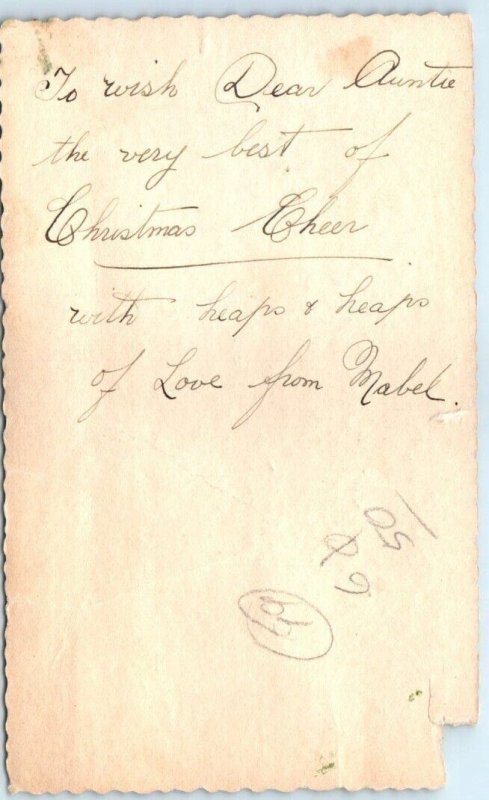 To wish Dear Auntie
the very best of
Christmas Cheer
with heaps & heaps
of Love from Mabel.